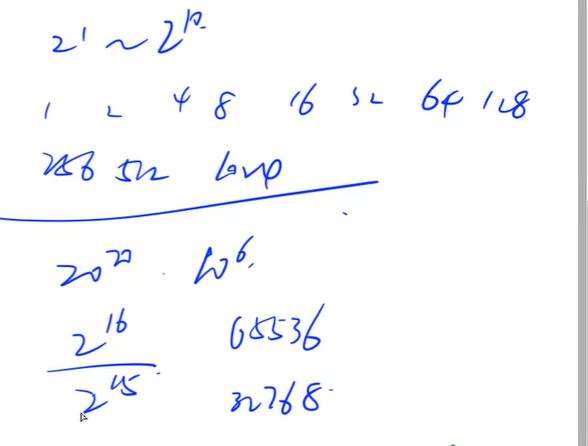 2¹ ~ 2¹⁰
1 2 4 8 16 32 64 128
256 512
10⁶
2¹⁶ 65536
2¹⁵ 32768